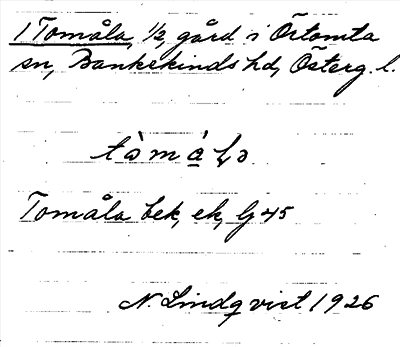 1 Tomåla, 1/2, gård i Örtomta
sn, Bankekinds hd, Österg. l.
Tomåla bek, ek, Gj 45
N. Lindqvist 1926